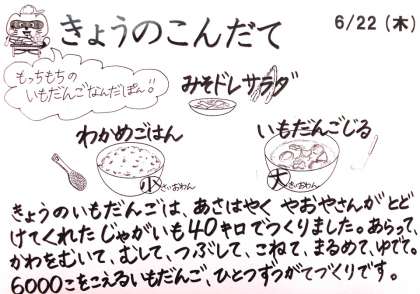 きょうのこんだて
6/22(木)
もっちもちの
いもだんごなんだぽん!!
みそドレサラダ
わかめごはん
いもだんごじる
小さいおわん
大きいおわん
きょうのいもだんごは、あさはやく やおやさんがとど
けてくれた じゃがいも40キロでつくりました。あらって、
かわをむいて、むして、つぶして、こねて、まるめて、ゆでて。
6000こをこえるいもだんご、ひとつずつがてづくりです。